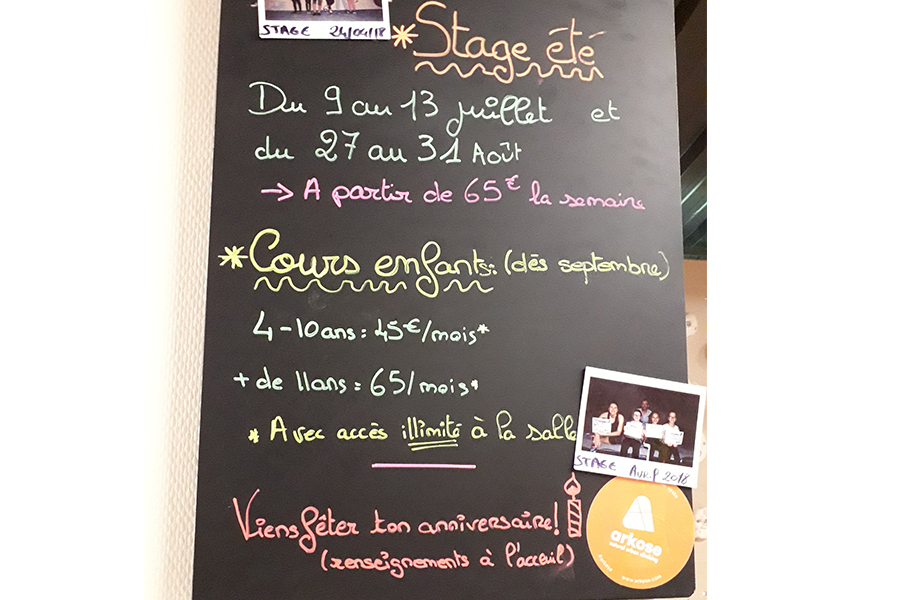 STAGE 24/04/18
*Stage été
Du 9 au 13 juillet et
du 27 au 31 Août
→ A partir de 65€ la semaine
*Cours enfants: (dés septembre)
4-10ans: 45€/mois*
+ de 11ans: 65/mois*
* Avec accès illimité à la salle
STAGE AVRIL 2018
Viens fêter ton anniversaire!
(renseignements à l'acceuil)
arkose
natural urban climbing
www.arkose.com